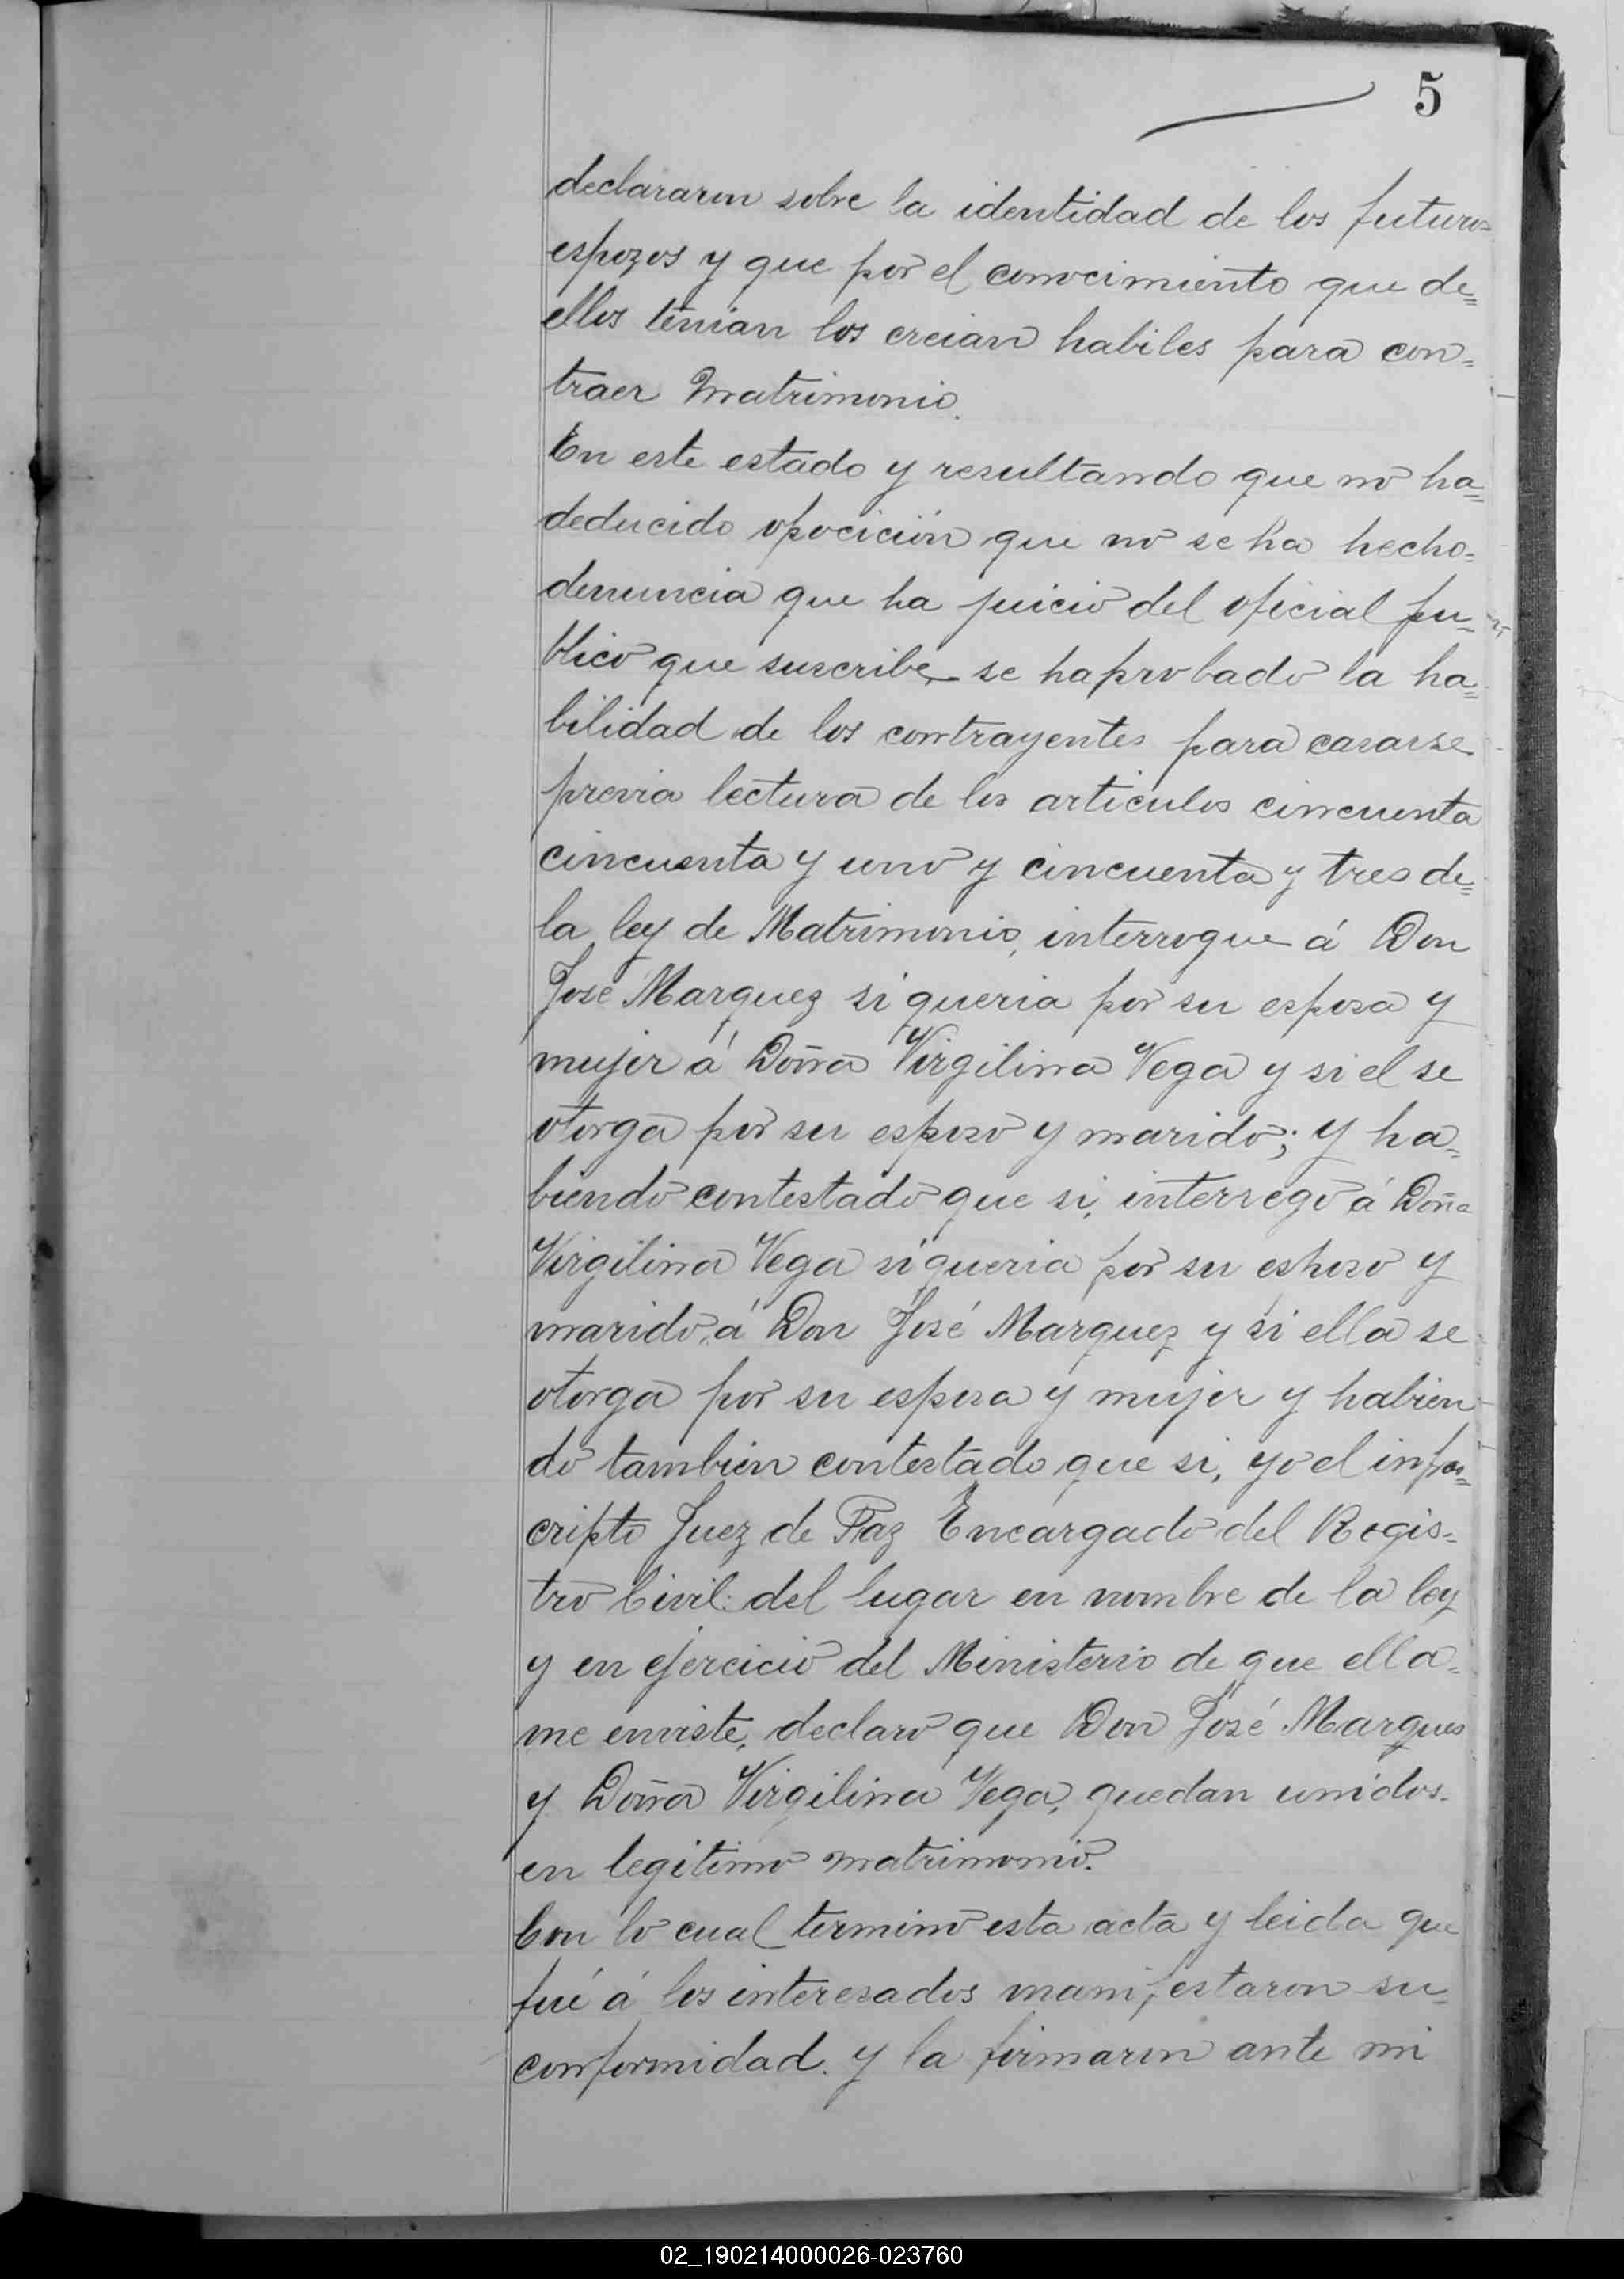 5
declararon sobre la identidad de los futuros
espozos y que por el conocimiento que de=
ellos tenian los creian habiles para con=
traer Matrimonio.
En este estado y resultando que no ha=
deducido opocición que no se ha hecho=
denuncia que ha juicio del oficial pu=
blico que suscribe se haprobado la ha=
bilidad de los contrayentes para casarse
previa lectura de los articulos cincuenta
cincuenta y uno y cincuenta y tres de=
la ley de Matrimonio, interrogue á Don
José Marquez si queria por su esposa y
mujer á Doña Virgilina Vega y si el se
otorga por su esposo y marido; y ha=
biendo contestado que si, interrogo á Doña
Virgilina Vega si queria por su esposo y
marido, á Don José Marquez y si ella se
otorga por su esposa y mujer y habien-
do tambien contestado que si, yo el infras=
cripto Juez de Paz Encargado del Regis=
tro Civil del lugar en nombre de la ley
y en ejercicio del Ministerio de que ella=
me enviste, declaro que Don José Marques
y Doña Virgilina Vega, quedan unidos.
en legitimo matrimonio.
Con lo cual termino esta acta y leida que
fué á los interesados manifestaron su=
conformidad. y la firmaron ante mi
02_190214000026-023760